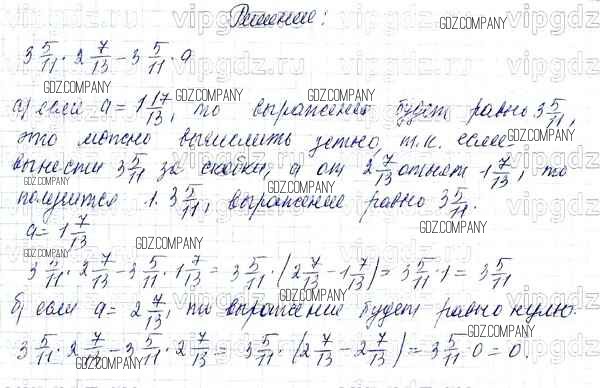 Решение:
3 5/11 · 2 7/13 - 3 5/11 · a
а) если a = 1 7/13, то выражение будет равно 3 5/11,
это можно вычислить устно, т.к. если
вынести 3 5/11 за скобки, а от 2 7/13 отнять 1 7/13, то
получится 1 · 3 5/11, выражение равно 3 5/11.
a = 1 7/13
3 5/11 · 2 7/13 - 3 5/11 · 1 7/13 = 3 5/11 · (2 7/13 - 1 7/13) = 3 5/11 · 1 = 3 5/11
б) если a = 2 7/13, то выражение будет равно нулю.
3 5/11 · 2 7/13 - 3 5/11 · 2 7/13 = 3 5/11 · (2 7/13 - 2 7/13) = 3 5/11 · 0 = 0.
GDZ.COMPANY
vipgdz.ru